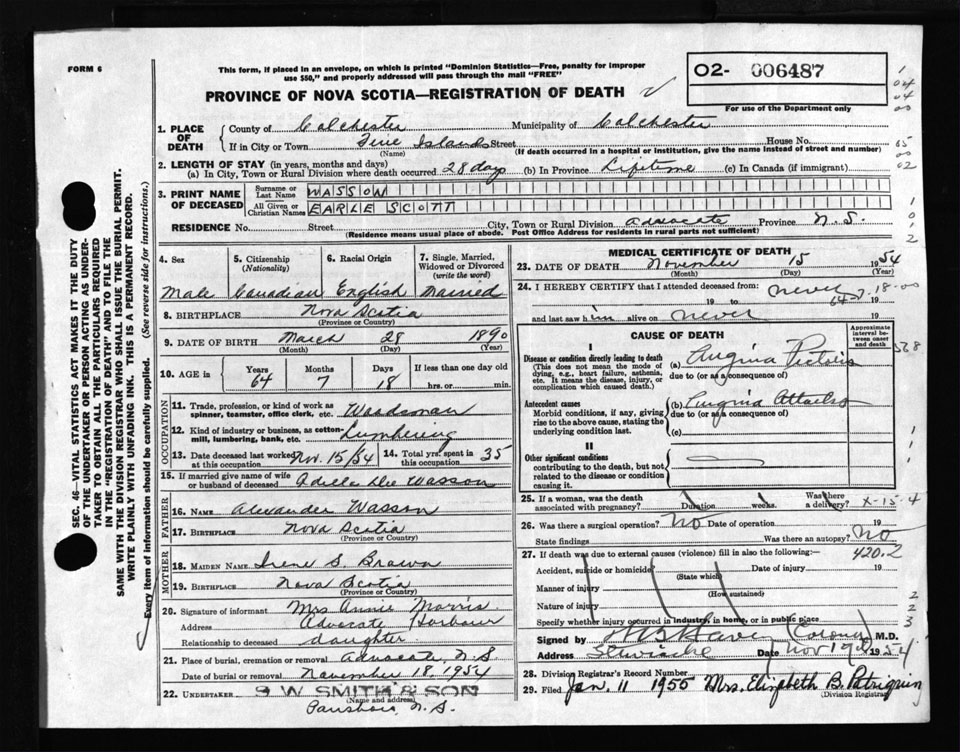 FORM 6
This form, if placed in an envelope, on which is printed "Dominion Statistics—Free, penalty for improper
use $50," and properly addressed will pass through the mail "FREE"
O2- 006487
For use of the Department only
PROVINCE OF NOVA SCOTIA—REGISTRATION OF DEATH
1. PLACE OF DEATH
County of Colchester Municipality of Colchester
If in City or Town Five Islands Street House No.
(Name) (If death occurred in a hospital or institution, give the name instead of street and number)
2. LENGTH OF STAY (in years, months and days)
(a) In City, Town or Rural Division where death occurred 28 days (b) In Province Lifetime (c) In Canada (if immigrant)
3. PRINT NAME OF DECEASED
Surname or Last Name WASSON
All Given or Christian Names EARLE SCOTT
RESIDENCE No. Street City, Town or Rural Division Advocate Province N.S.
(Residence means usual place of abode. Post Office Address for residents in rural parts not sufficient)
4. Sex 5. Citizenship (Nationality) 6. Racial Origin 7. Single, Married, Widowed or Divorced (write the word)
Male Canadian English Married
8. BIRTHPLACE Nova Scotia
(Province or Country)
9. DATE OF BIRTH March 28 1890
(Month) (Day) (Year)
10. AGE in Years Months Days If less than one day old
64 7 18 hrs. or min.
OCCUPATION
11. Trade, profession, or kind of work as spinner, teamster, office clerk, etc. Woodsman
12. Kind of industry or business, as cotton-mill, lumbering, bank, etc. Lumbering
13. Date deceased last worked at this occupation Nov. 15/54 14. Total yrs. spent in this occupation 35
15. If married give name of wife or husband of deceased Adella Wasson
FATHER
16. Name Alexander Wasson
17. Birthplace Nova Scotia
(Province or Country)
MOTHER
18. MAIDEN NAME Irene S. Brown
19. BIRTHPLACE Nova Scotia
(Province or Country)
20. Signature of informant Mrs Annie Morris
Address Advocate Harbour
Relationship to deceased daughter
21. Place of burial, cremation or removal Advocate, N.S
Date of burial or removal November 18, 1954
22. UNDERTAKER W SMITH & SON
(Name and address)
Parrsboro, N.S.
MEDICAL CERTIFICATE OF DEATH
23. DATE OF DEATH November 15 1954
(Month) (Day) (Year)
24. I HEREBY CERTIFY that I attended deceased from: never
19 to 64-7-18-00 19
and last saw him alive on never 19
CAUSE OF DEATH
Approximate interval between onset and death
I
Disease or condition directly leading to death
(This does not mean the mode of dying, e.g., heart failure, asthenia, etc. It means the disease, injury, or complication which caused death.)
(a) Angina Pectoris
due to (or as a consequence of)
Antecedent causes
Morbid conditions, if any, giving rise to the above cause, stating the underlying condition last.
(b) Angina Attacks
due to (or as a consequence of)
(c)
II
Other significant conditions
contributing to the death, but not related to the disease or condition causing it.
25. If a woman, was the death associated with pregnancy? Duration weeks. Was there a delivery? X-15-4
26. Was there surgical operation? No Date of operation 19
State findings Was there an autopsy? No
27. If death was due to external causes (violence) fill in also the following:— 420.2
Accident, suicide or homicide Date of injury 19
(State which)
Manner of injury
(How sustained)
Nature of injury
Specify whether injury occurred in industry, in home, or in public place
Signed by (Coroner) M.D.
Address Stewiacke Date Nov 19th 1954
28. Division Registrar's Record Number
29. Filed Jan. 11 1955 Mrs. Elizabeth B. Patriquin
(Division Registrar)
SEC. 46—VITAL STATISTICS ACT MAKES IT THE DUTY
OF THE UNDERTAKER OR PERSON ACTING AS UNDER-
TAKER TO OBTAIN ALL THE PARTICULARS REQUIRED
IN THE "REGISTRATION OF DEATH" AND TO FILE THE
SAME WITH THE DIVISION REGISTRAR WHO SHALL ISSUE THE BURIAL PERMIT.
WRITE PLAINLY WITH UNFADING INK. THIS IS A PERMANENT RECORD.
Every item of information should be carefully supplied. (See reverse side for instructions.)